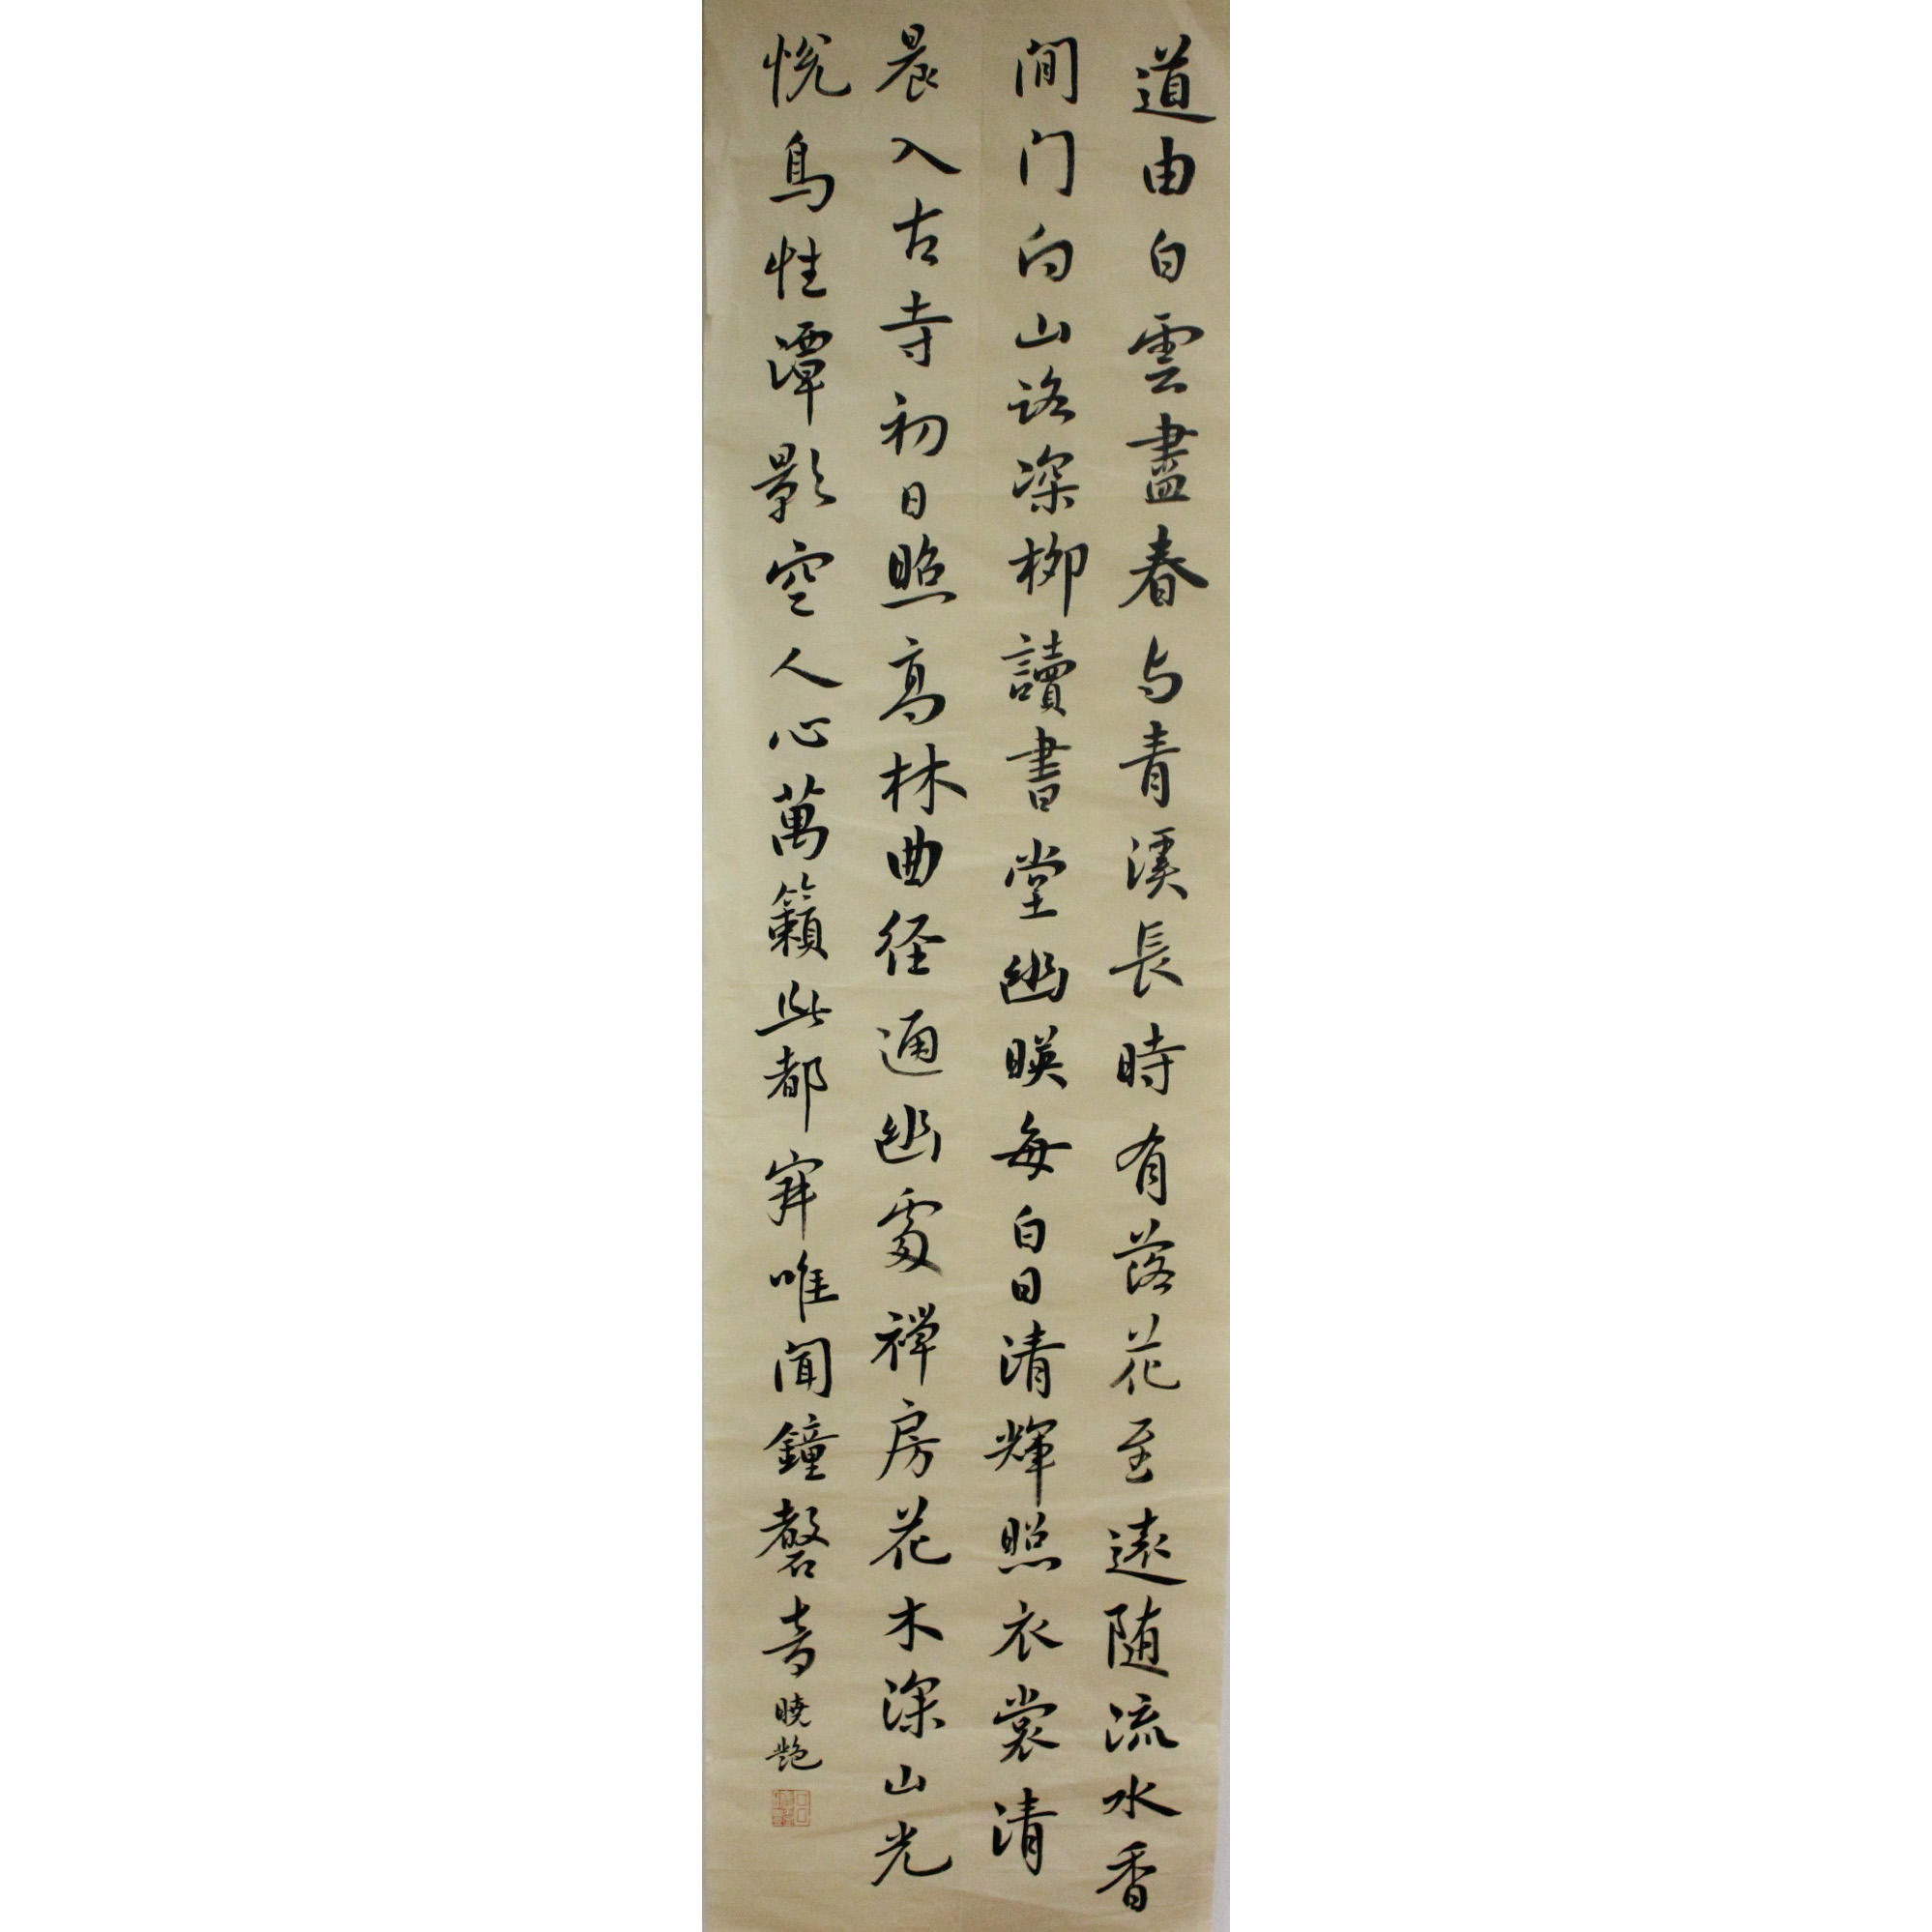 道由白雲盡春与青溪長時有落花至遠随流水香
閒门向山路深柳讀書堂幽暎每白日清輝照衣裳清
晨入古寺初日照高林曲径通幽處禅房花木深山光
悦鳥性潭影空人心萬籟此都寂唯闻鐘磬音
曉艷